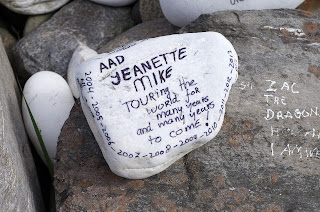 AAD
JEANETTE
MIKE
TOURING the
world for
many years
and many years
to come!
2004-2005-2006-2007-2008-2009-2010
ZAC
THE
DRAGON
I AM